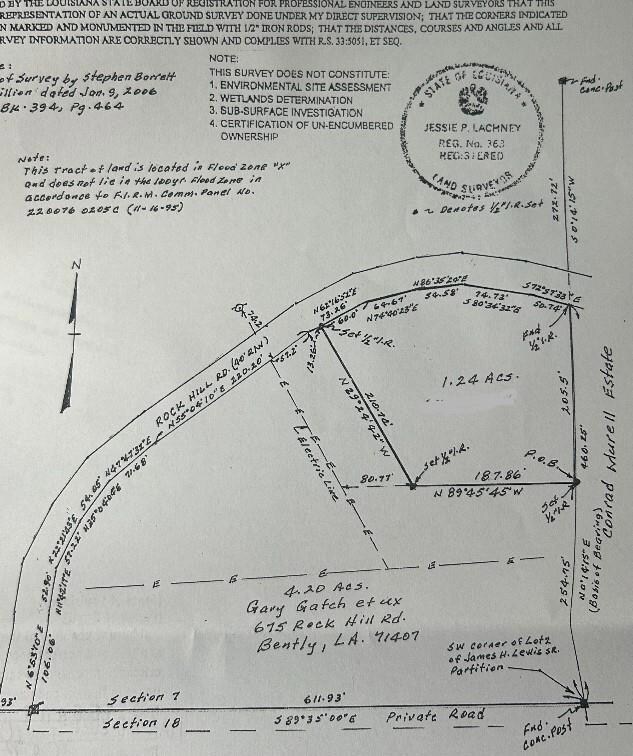 D BY THE LOUISIANA STATE BOARD OF REGISTRATION FOR PROFESSIONAL ENGINEERS AND LAND SURVEYORS THAT THIS
REPRESENTATION OF AN ACTUAL GROUND SURVEY DONE UNDER MY DIRECT SUPERVISION; THAT THE CORNERS INDICATED
N MARKED AND MONUMENTED IN THE FIELD WITH 1/2" IRON RODS; THAT THE DISTANCES, COURSES AND ANGLES AND ALL
RVEY INFORMATION ARE CORRECTLY SHOWN AND COMPLIES WITH R.S. 33:5051, ET SEQ.
e:
of Survey by Stephen Borrett
illion dated Jan. 9, 2006
BK. 394, Pg. 464
NOTE:
THIS SURVEY DOES NOT CONSTITUTE:
1. ENVIRONMENTAL SITE ASSESSMENT
2. WETLANDS DETERMINATION
3. SUB-SURFACE INVESTIGATION
4. CERTIFICATION OF UN-ENCUMBERED
OWNERSHIP
STATE OF LOUISIANA
JESSIE P. LACHNEY
REG. No. 363
REGISTERED
LAND SURVEYOR
Fnd.
Conc. Post
Note:
This Tract of land is located in Flood Zone "X"
and does not lie in the 100yr. Flood Zone in
accordance to F.I.R.M. Comm. Panel No.
220076 0205C (11-16-95)
~ Denotes 1/2" I.R. Set
272.72'
S 0°14'15" W
N
74.2
N 62°16'52" E
73.26'
60.0'
64.67'
N 74°40'23" E
N 86°35'20" E
54.58'
74.73'
S 80°34'32" E
S 72°57'33" E
50.74'
Set 1/2" I.R.
Fnd
1/2" I.R.
57.2'
13.26'
ROCK HILL RD. (40' R/W)
N 55°04'10" E 220.20'
N 29°24'42" W
1.24 Acs.
205.5'
460.25'
Conrad Murell Estate
E
E
E
E
Electric Line
E
E
set 1/2" I.R.
P.O.B.
80.77'
187.86'
N 89°45'45" W
Set
1/2" I.R.
54.05'
N 47°47'32" E
71.68'
52.90'
106.06'
254.75'
N 0°14'15" E
(Basis of Bearing)
E
E
E
E
E
4.20 Acs.
Gary Gatch et ux
675 Rock Hill Rd.
Bently, LA. 71407
SW corner of Lot 2
of James H. Lewis SR.
Partition
93'
Section 7
611.93'
Section 18
S 89°35'00" E
Private Road
Fnd.
Conc. Post